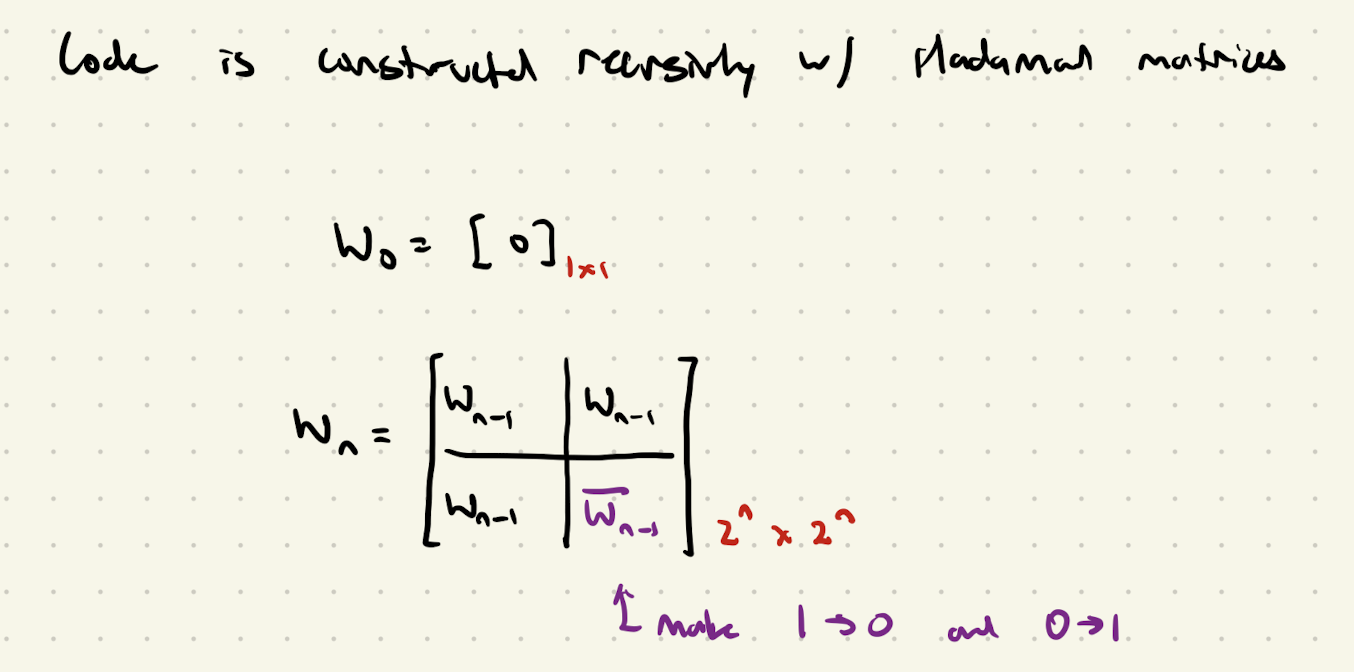 Code is constructed recursively w/ Hadamad matrices
W₀ = [0]₁ₓ₁
Wₙ = [ Wₙ₋₁ | Wₙ₋₁
Wₙ₋₁ | W̅ₙ₋₁ ] 2ⁿ x 2ⁿ
↑ make 1→0 and 0→1